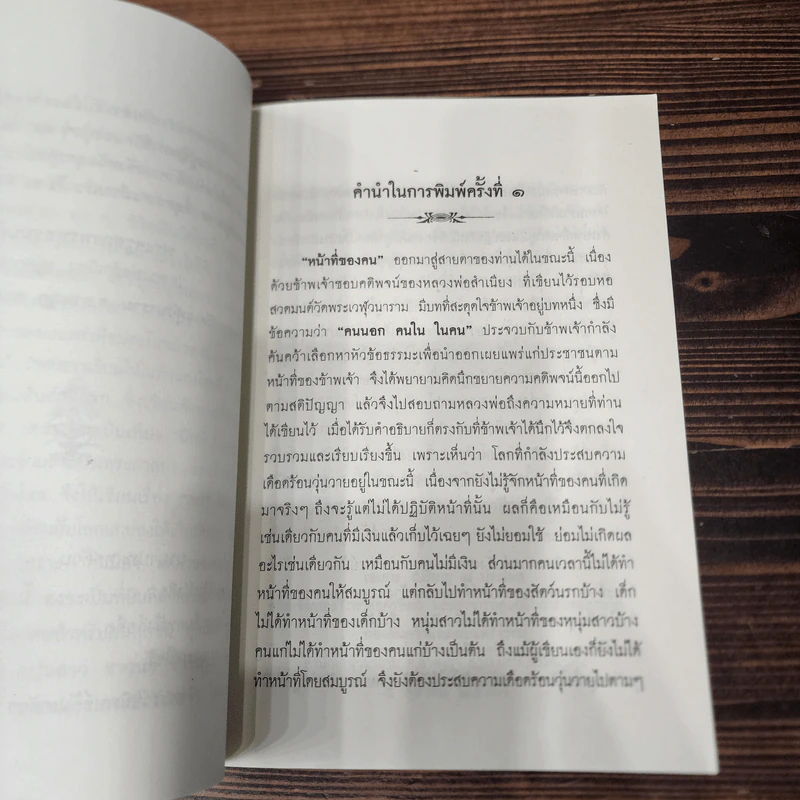 คำนำในการพิมพ์ครั้งที่ ๑
“หน้าที่ของคน” ออกมาสู่สายตาของท่านได้ในขณะนี้ เนื่อง
ด้วยข้าพเจ้าชอบคติพจน์ของหลวงพ่อสำเนียง ที่เขียนไว้รอบหอ
สวดมนต์วัดพระเวฬุวนาราม มีบทที่สะดุดใจข้าพเจ้าอยู่บทหนึ่ง ซึ่งมี
ข้อความว่า “คนนอก คนใน ในคน” ประจวบกับข้าพเจ้ากำลัง
ค้นคว้าเลือกหาหัวข้อธรรมะเพื่อนำออกเผยแพร่แก่ประชาชนตาม
หน้าที่ของข้าพเจ้า จึงได้พยายามคิดนึกขยายความคติพจน์นี้ออกไป
ตามสติปัญญา แล้วจึงไปสอบถามหลวงพ่อถึงความหมายที่ท่าน
ได้เขียนไว้ เมื่อได้รับคำอธิบายก็ตรงกับที่ข้าพเจ้าได้นึกไว้จึงตกลงใจ
รวบรวมและเรียบเรียงขึ้น เพราะเห็นว่า โลกที่กำลังประสบความ
เดือดร้อนวุ่นวายอยู่ในขณะนี้ เนื่องจากยังไม่รู้จักหน้าที่ของคนที่เกิด
มาจริงๆ ถึงจะรู้แต่ไม่ได้ปฏิบัติหน้าที่นั้น ผลก็คือเหมือนกับไม่รู้
เช่นเดียวกับคนที่มีเงินแล้วเก็บไว้เฉยๆ ยังไม่ยอมใช้ ย่อมไม่เกิดผล
อะไรเช่นเดียวกัน เหมือนกับคนไม่มีเงิน ส่วนมากคนเวลานี้ไม่ได้ทำ
หน้าที่ของคนให้สมบูรณ์ แต่กลับไปทำหน้าที่ของสัตว์นรกบ้าง เด็ก
ไม่ได้ทำหน้าที่ของเด็กบ้าง หนุ่มสาวไม่ได้ทำหน้าที่ของหนุ่มสาวบ้าง
คนแก่ไม่ได้ทำหน้าที่ของคนแก่บ้างเป็นต้น ถึงแม้ผู้เขียนเองก็ยังไม่ได้
ทำหน้าที่โดยสมบูรณ์ จึงยังต้องประสบความเดือดร้อนวุ่นวายไปตามๆ